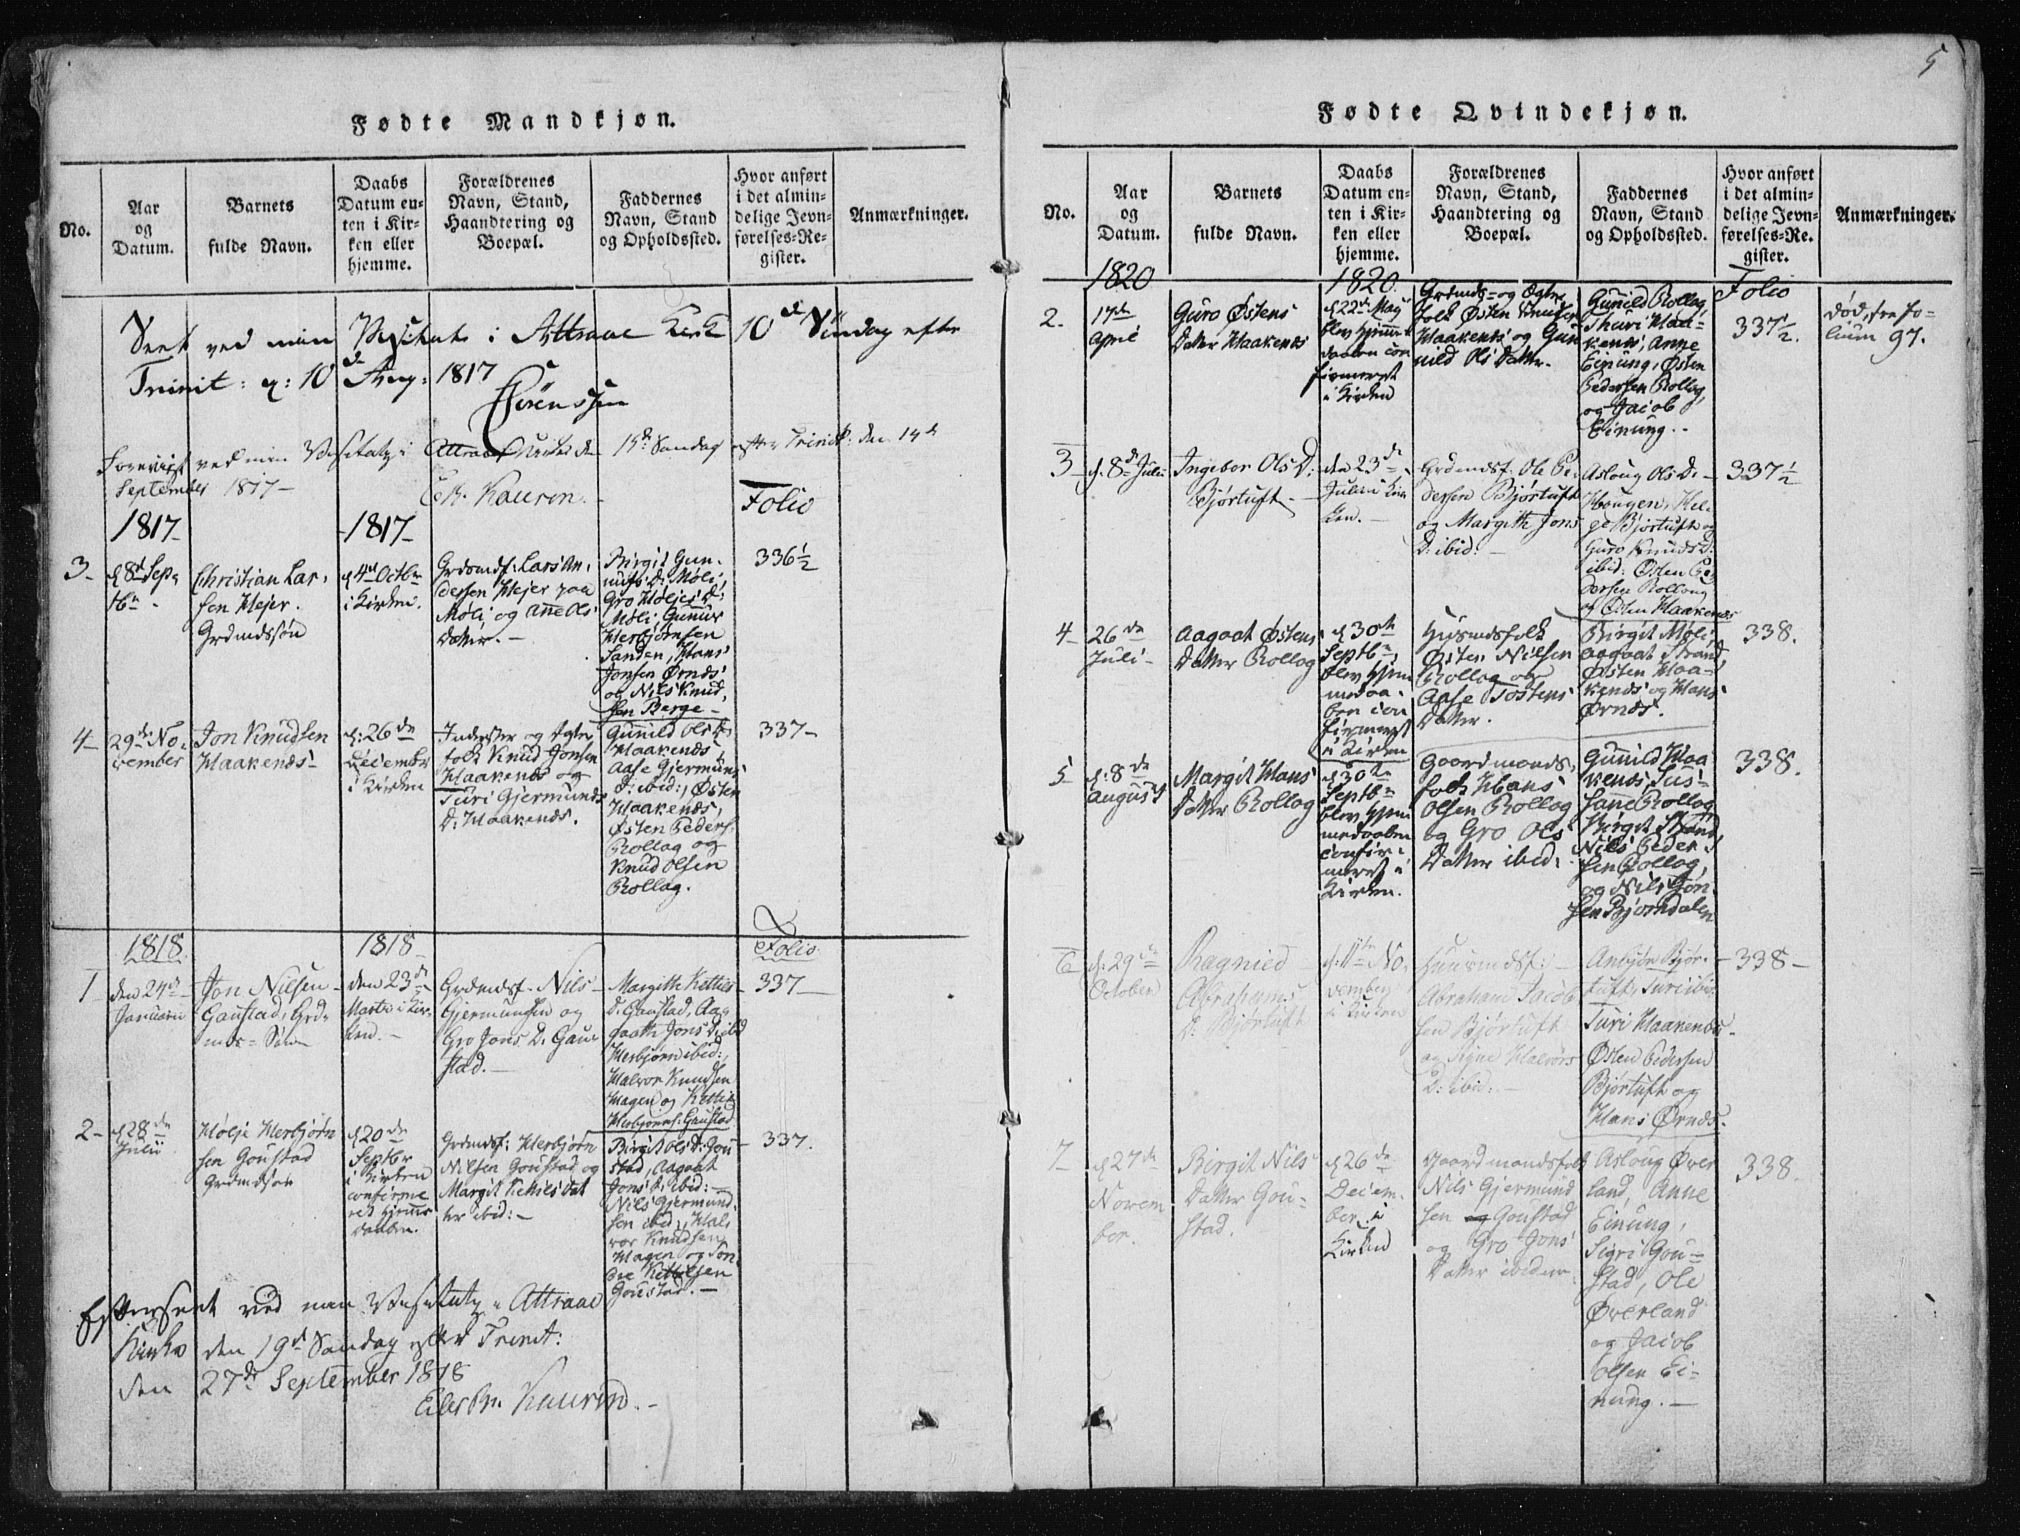 5
Fødte Mandkjøn.
No.
Aar
og
Datum.
Barnets
fulde Navn.
Daabs
Datum en-
ten i Kir-
ken eller
hjemme.
Forældrenes
Navn, Stand,
Haandtering og
Boepæl.
Faddernes
Navn, Stand
og Opholdssted.
Hvor anført
i det almin-
delige Jevn-
førelses-Re-
gister.
Anmærkninger.
Seet ved min Visitats i Attraae Kirke 10de Søndag efter
Trinit: d: 10de Aug: 1817
Sørenssen
Foreviist ved min Visitatz i Attraae Kirke den 15de Søndag efter Trinit: den 14de
September 1817 –
E. Kaurin.
Folio
1817
1817
3
d 8de Sep-
tbr.
Christian Lar-
sen Mejer.
Grdmdssøn
d 4de Octbr
i Kirken.
Grdmdsf: Lars An-
dersen Mejer paa
Møli og Anne Ols
Datter. –
Birgit Gun-
nulfs D: Møli,
Gro Høljes D:
Møli, Gunnuf
Herbjørnsen
Sanden, Hans
Jonsen Ørnes
og Nils Knud-
sen Berge –
336½
4
29de No-
vember
Jon Knudsen
Haakenæs
d: 26de
December
i Kirken
Inderster og Ægte-
folk Knud Jonsen
Haakenæs og
Turi Gjermunds
D: Haakenæs.
Gunild Ols D:
Haakenæs,
Aase Gjermunds
D: ibid:, Østen
Haakenæs,
Østen Peders:
Rollag og
Knud Olsen
Rollag.
337
1818
1818
Folio
1
den 24de
Januarii
Jon Nilsen
Gaustad, Grd-
mds-Søn
den 23de
Marts i Kir-
ken. –
Grdmdsf. Nils
Gjermundsen og
Gro Jons D. Gau-
stad. –
Margith Kettils
D. Gaustad, Aag-
aath Jons D ibid
Herbjørn ibid:,
Halvor Knudsen
Hagen og Kettil
Herbjørns: Gaustad
337
2
d 28de
Julii
Hølje Herbjørn
sen Goustad
Grdmdssøn
d 20de
Septbr
i Kirken
confirme
ret hjemme
daaben.
Grdmdsf: Herbjørn
Nilsen Goustad og
Margit Kettils Dat
ter ibid: –
Birgit Ols D: Gou
stad, Aagaat
Jons D. ibid: –
Nils Gjermund-
sen ibid:, Hal-
vor Knudsen
Hagen og Søn-
dre Kettilsen
Goustad. –
337.
Efterseet ved min Visitatz i Attraae
Kirke den 19de Søndag efter Trinit:
den 27de September 1818
Kaurin. –
Fødte Qvindekjøn.
No.
Aar
og
Datum.
Barnets
fulde Navn.
Daabs
Datum en-
ten i Kir-
ken eller
hjemme.
Forældrenes
Navn, Stand,
Haandtering og
Boepæl.
Faddernes
Navn, Stand
og Opholdssted.
Hvor anført
i det almin-
delige Jevn-
førelses-Re-
gister.
Anmærkninger.
1820
1820
Folio
2.
17de
April
Guro Østens
Datter Haakenæs
d 22de Maij
blev hjemme
daaben con
firmeret
i Kirken
Grdmds- og Ægte
folk Østen Knudsen
Haakenæs og Gun
nild Ols Datter.
Gunild Rollag,
Thuri Haa-
kenæs, Anne
Einung, Østen
Pedersen Rollag,
og Jacob
Einung. –
337½.
Død, see fo-
lium 97.
3
d. 8de Julii
Ingebor Ols D:
Bjørtuft –
den 23de
Julii i Kir
ken. –
Grdmdsf. Ole Pe-
dersen Bjørtuft
og Margith Jons
D. ibid: –
Asloug Ols D:
Hougen, Hel-
ge Bjørtuft og
Guro Knuds D:
ibid: Østen Pe-
dersen Rollag
og Østen Haakenæs
337½
4
26de
Juli –
Aagaat Østens
Datter Rollag
d 30te
Septbr
blev hjem
medaa-
ben con
firmeret
i Kirken
Husmdsfolk
Østen Nilsen
Rollag og
Aase Tostens
Datter.
Birgit Møli,
Aagaat Strand,
Østen Haa-
kenæs og Hans
Ørnes.
338.
5
d: 8de
August
Margit Hans
Datter Rollag
d 30te
Septbr
blev hjem
medaaben
confir-
meret i
Kirken.
Gaardmands-
folk Hans
Olsen Rollag
og Gro Ols
Datter ibid:
Gunild Haa
kenæs, Sus-
sane Rollag,
Birgit Strand,
Nils Peder-
sen Rollag,
og Nils Jon
sen Bjørndalen
338.
6
d: 29de
October
Ragnied
Abrahams
D: Bjørtuft
d. 11te No-
vember
i Kirken
Huusmdsf: –
Abraham Jacob
sen Bjørtuft
og Signe Halvors
D: ibid: –
Anbjør Bjør-
tuft, Turi ibid:
Turi Haakenæs
Østen Pedersen
Bjørtuft og
Hans Ørnes.
338
7
d 27de
Novem
ber.
Birgit Nils
Datter Gou-
stad.
d 26de
Decem-
ber i
Kirken
Gaardmandsfolk
Nils Gjermund
sen og Goustad
og Gro Jons
Datter ibidem
Asloug Øver
land, Anne
Einung,
Sigri Gou-
stad, Ole
Øverland
og Jacob
Olsen Ei-
nung. –
338.